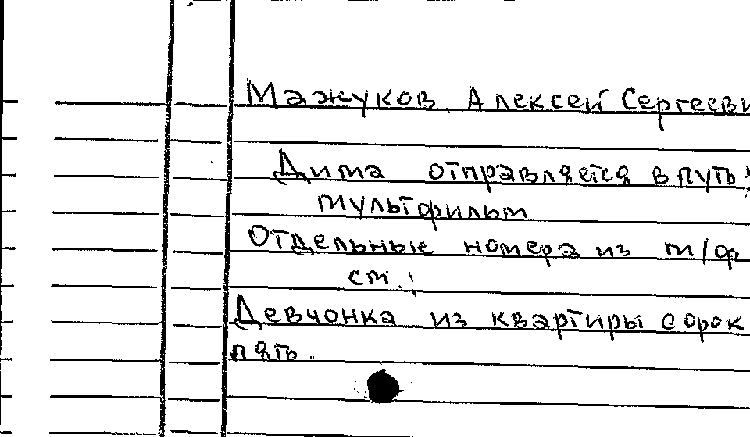 Мажуков Алексей Сергееви
Дима отправляется в путь!
мультфильм
Отдельные номера из м/ф
см.:
Девчонка из квартиры сорок
пять.